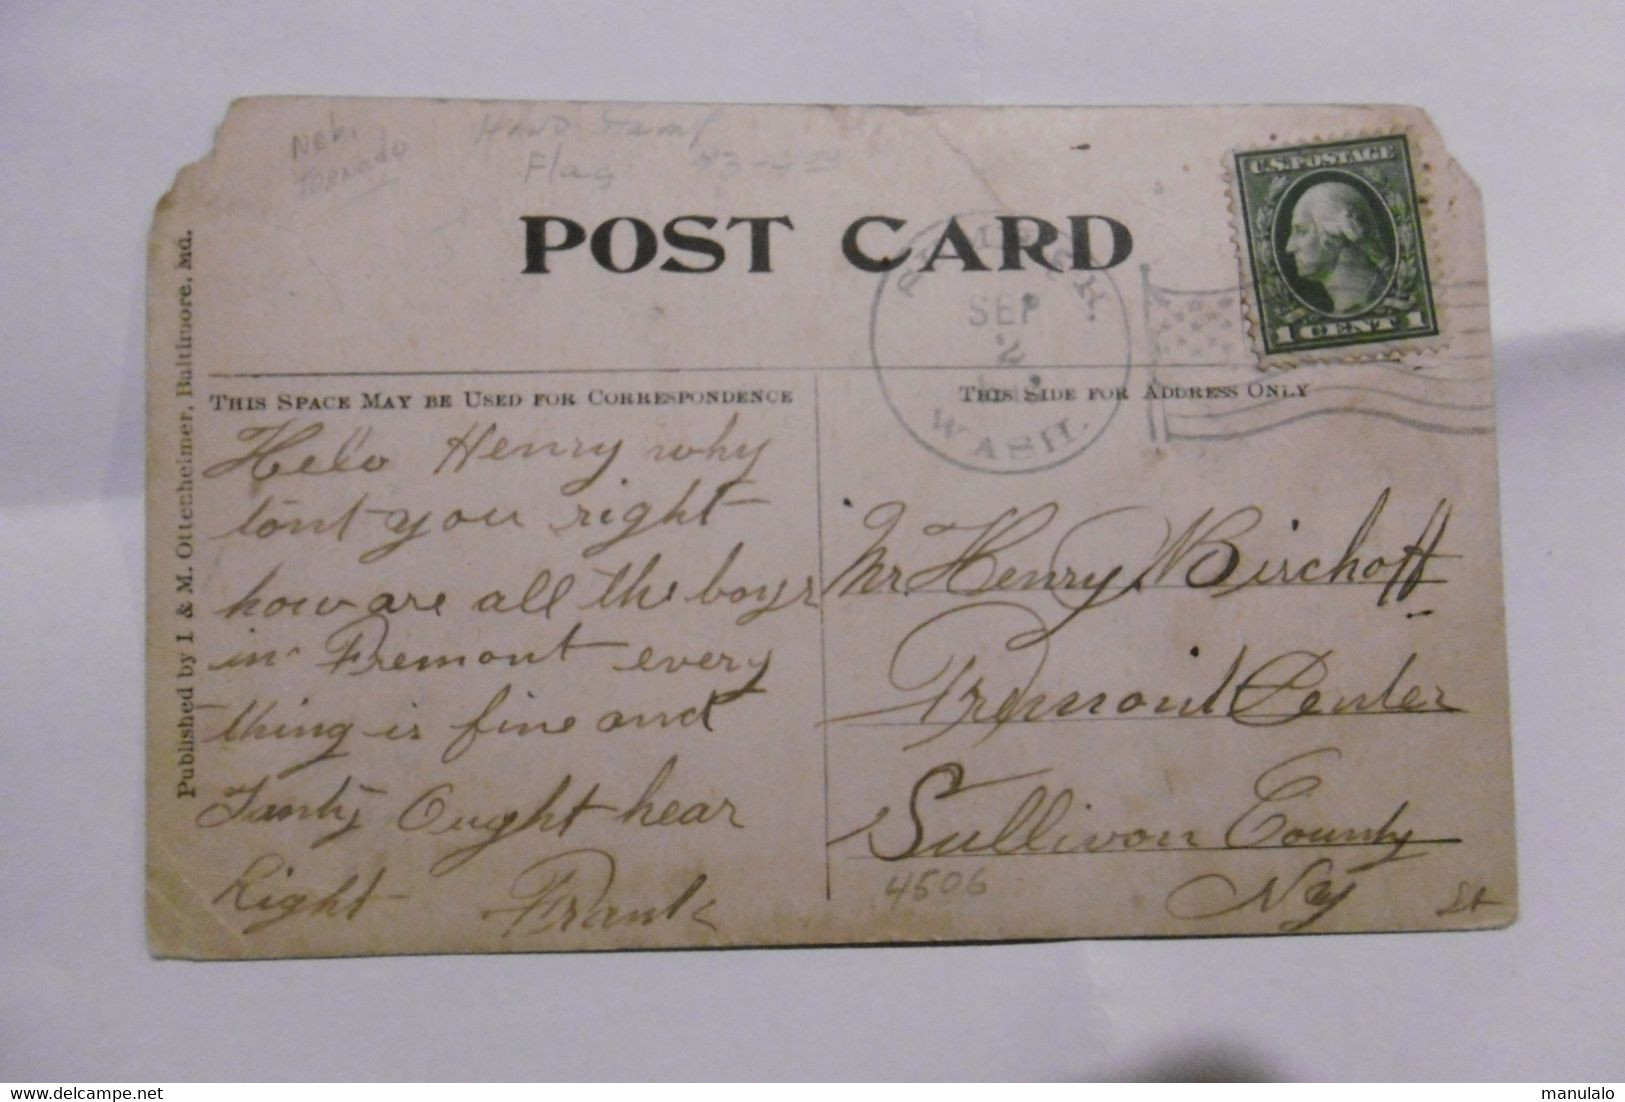 Neb.
TORNado
Hand Stamp
Flag
POST CARD
U.S. POSTAGE
1 CENT 1
SEP
2
WASH.
THIS SPACE MAY BE USED FOR CORRESPONDENCE
THIS SIDE FOR ADDRESS ONLY
Published by I & M. Ottenheimer, Baltimore, Md.
Hello Henry why
tont you right
how are all the boys
in Fremont every
thing is fine and
Ought hear
Right Frank
Mr Henry Birchoff
Fremont Center
Sullivan County
Ny
4506
manulalo